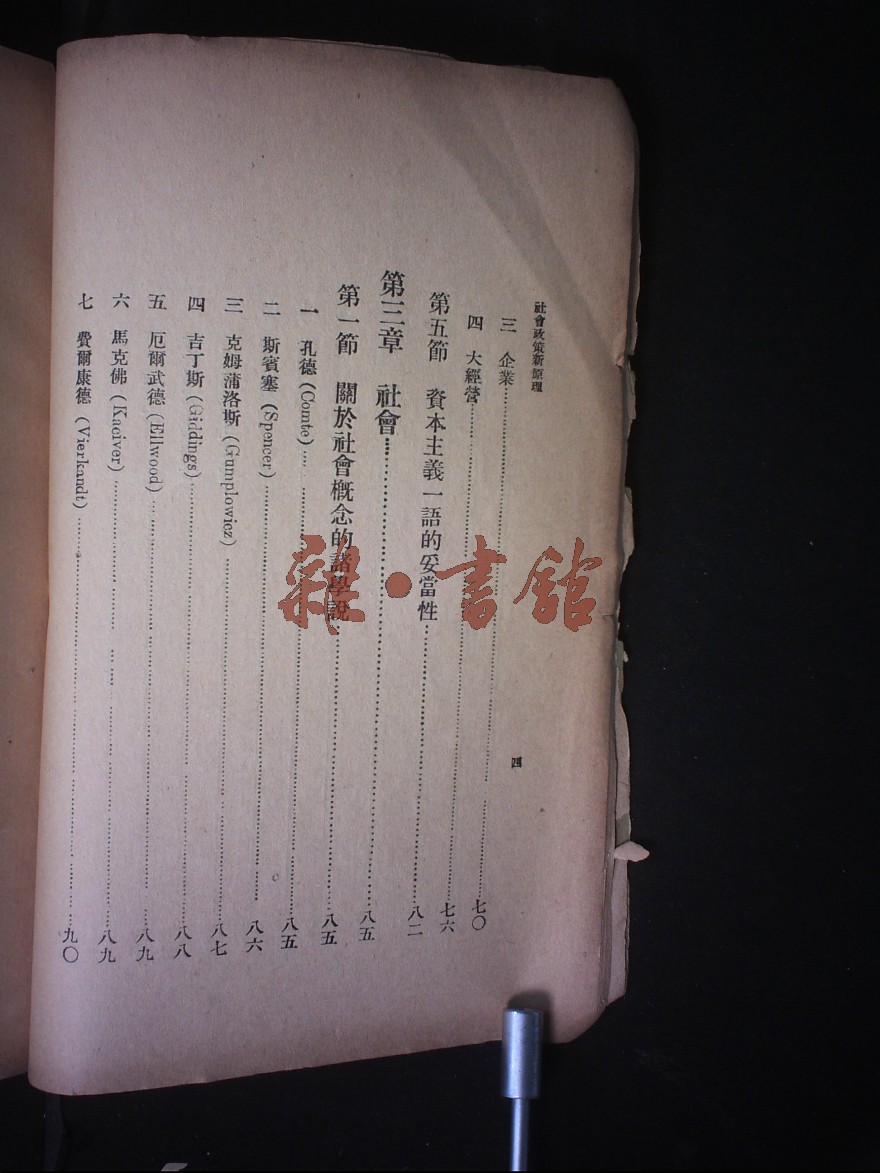 社會政策新原理
四
三 企業……七〇
四 大經營……七六
第五節 資本主義一語的妥當性……八二
第三章 社會……八五
第一節 關於社會概念的諸學說……八五
一 孔德(Comte)……八五
二 斯賓塞(Spencer)……八六
三 克姆蒲洛斯(Gumplowicz)……八七
四 吉丁斯(Giddings)……八八
五 厄爾武德(Ellwood)……八九
六 馬克佛(Kaciver)……八九
七 費爾康德(Vierkandt)……九〇
雜·書館